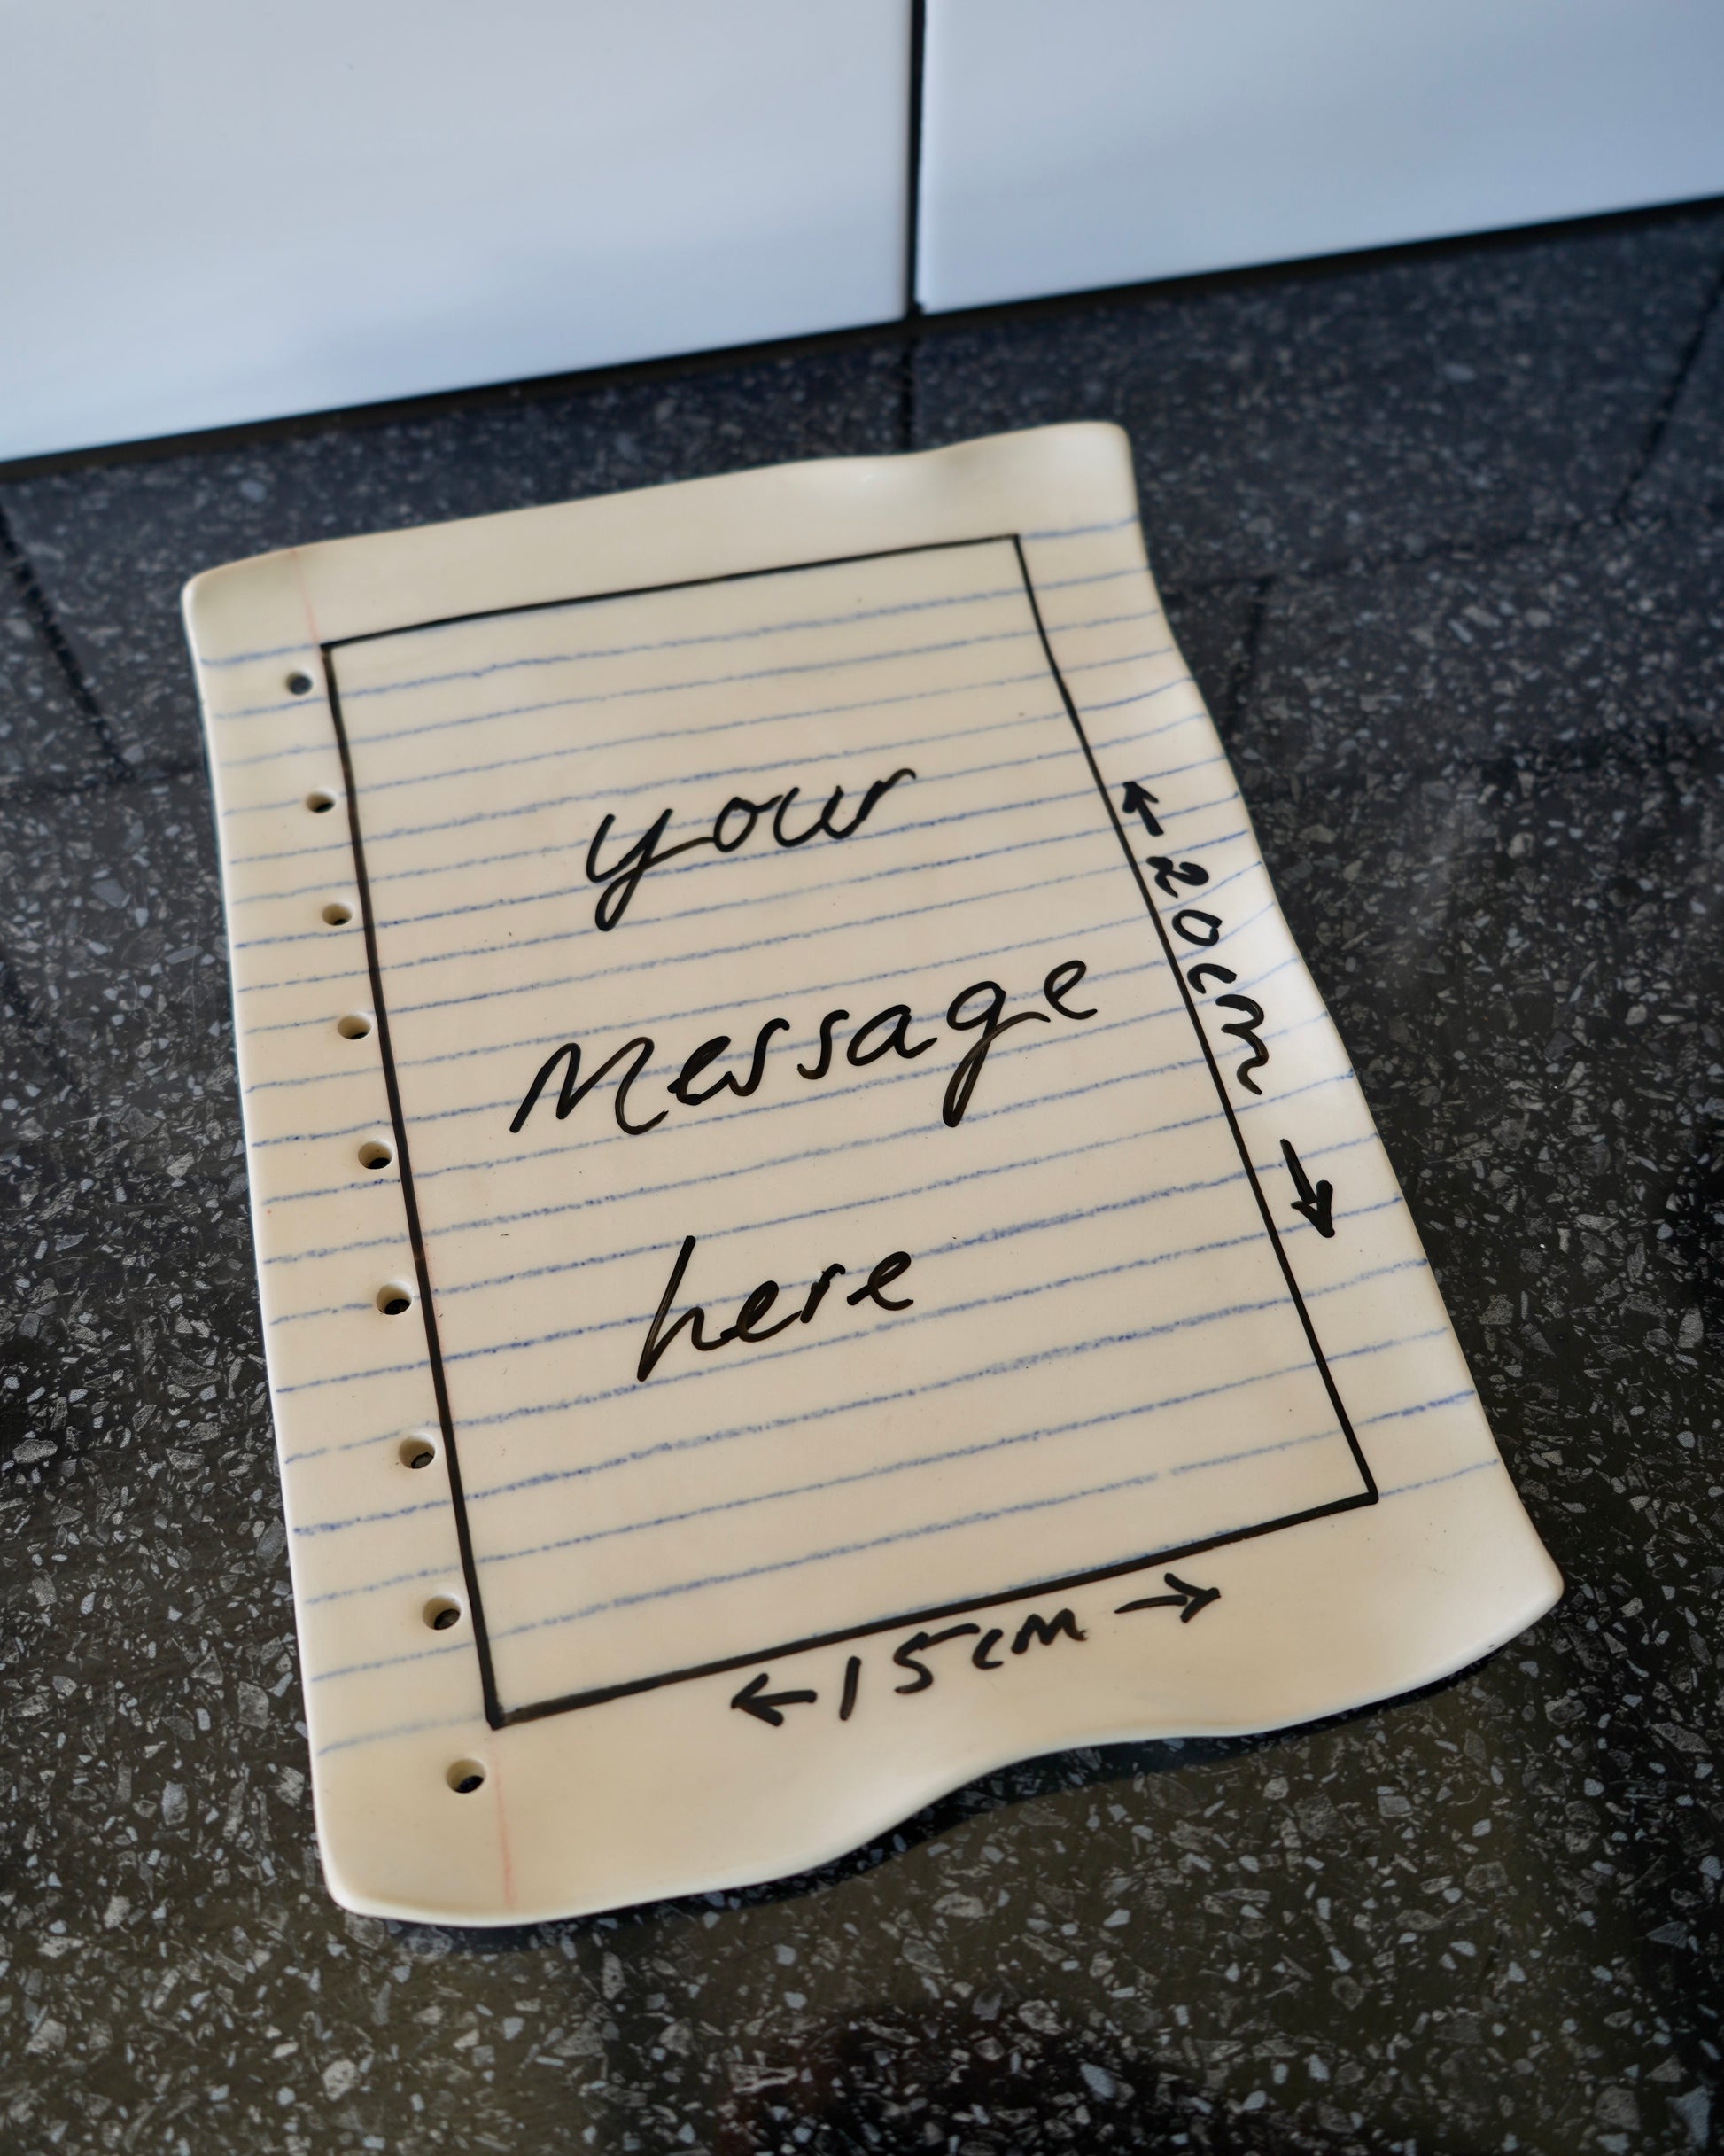 your
Message
here
←20cm→
←15cm→